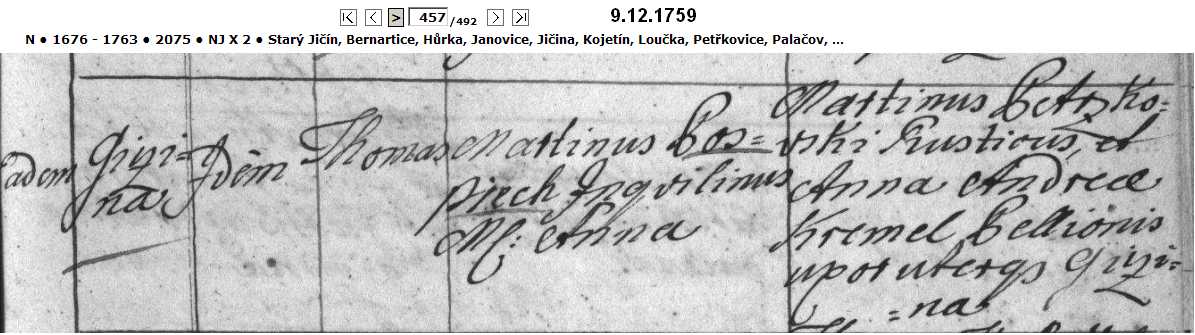 457 /492
9.12.1759
N ● 1676 - 1763 ● 2075 ● NJ X 2 ● Starý Jičín, Bernartice, Hůrka, Janovice, Jičina, Kojetín, Loučka, Petřkovice, Palačov, ...
adem
Giži=
na
Idem
Thomas
Martinus Pos=
piech Inqvilinus
M: Anna
Martinus Petržko=
vski Rusticus, et
Anna Andreæ
Kremel Pellionis
uxor uterqs Giži=
=na